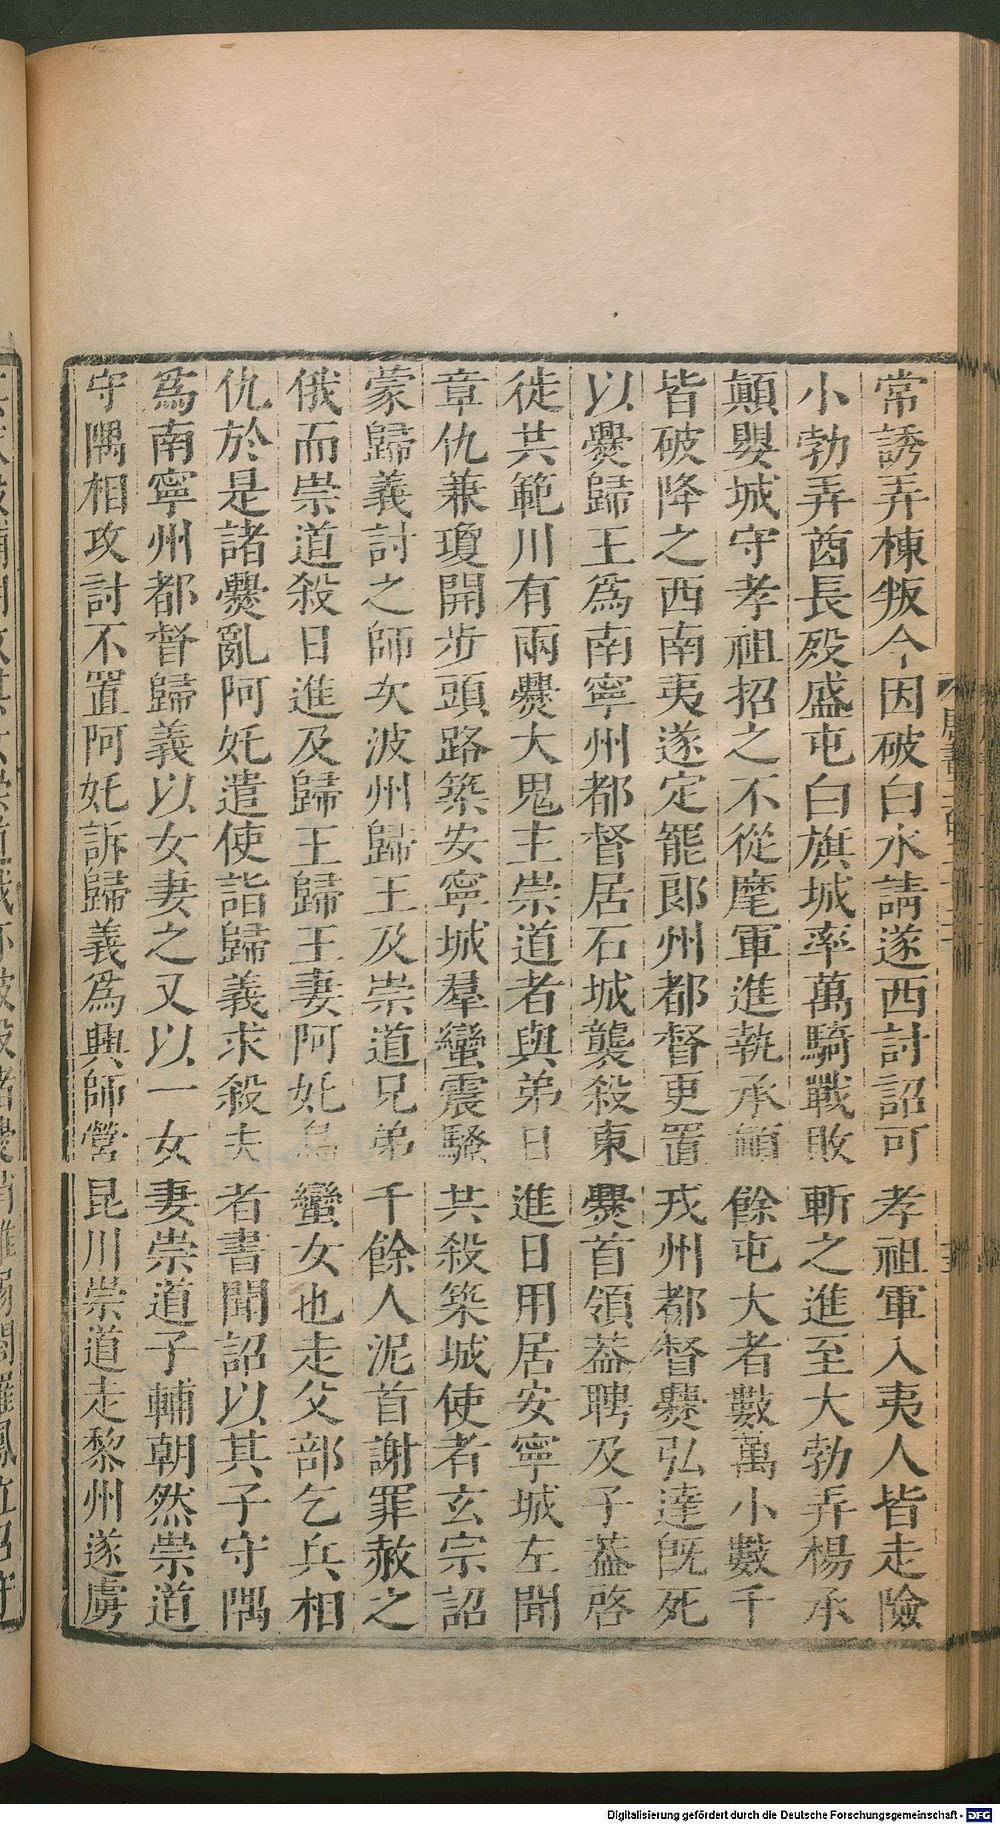 常誘弄棟叛今因破白水請遂西討詔可孝祖軍入夷人皆走險
小勃弄酋長殁盛屯白旗城率萬騎戰敗斬之進至大勃弄楊承
顛嬰城守孝祖招之不從麾軍進執承顛餘屯大者數萬小數千
皆破降之西南夷遂定罷郎州都督更置戎州都督爨弘達旣死
以爨歸王爲南寧州都督居石城襲殺東爨首領葢聘及子葢啓
徙共範川有兩爨大鬼主崇道者與弟日進日用居安寧城左聞
章仇兼瓊開步頭路築安寧城羣蠻震騷共殺築城使者玄宗詔
蒙歸義討之師次波州歸王及崇道兄弟千餘人泥首謝罪赦之
俄而崇道殺日進及歸王歸王妻阿妊烏蠻女也走父部乞兵相
仇於是諸爨亂阿妊遣使詣歸義求殺夫者書聞詔以其子守隅
爲南寧州都督歸義以女妻之又以一女妻崇道子輔朝然崇道
守隅相攻討不置阿妊訴歸義爲興師營昆川崇道走黎州遂虜
Digitalisierung gefördert durch die Deutsche Forschungsgemeinschaft - DFG